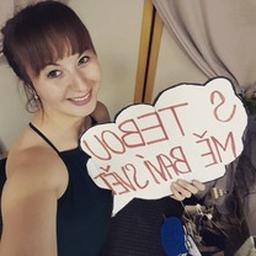 S TEBOU
MĚ BAVÍ SVĚT